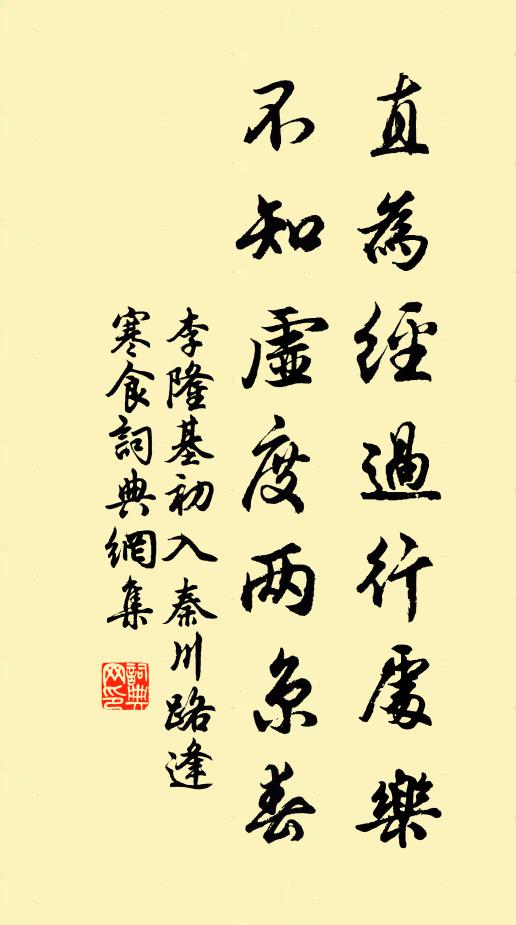 直為經過行處樂
不知虛度两京春
李隆基初入秦川路逢
寒食詞典網集
詞典网印